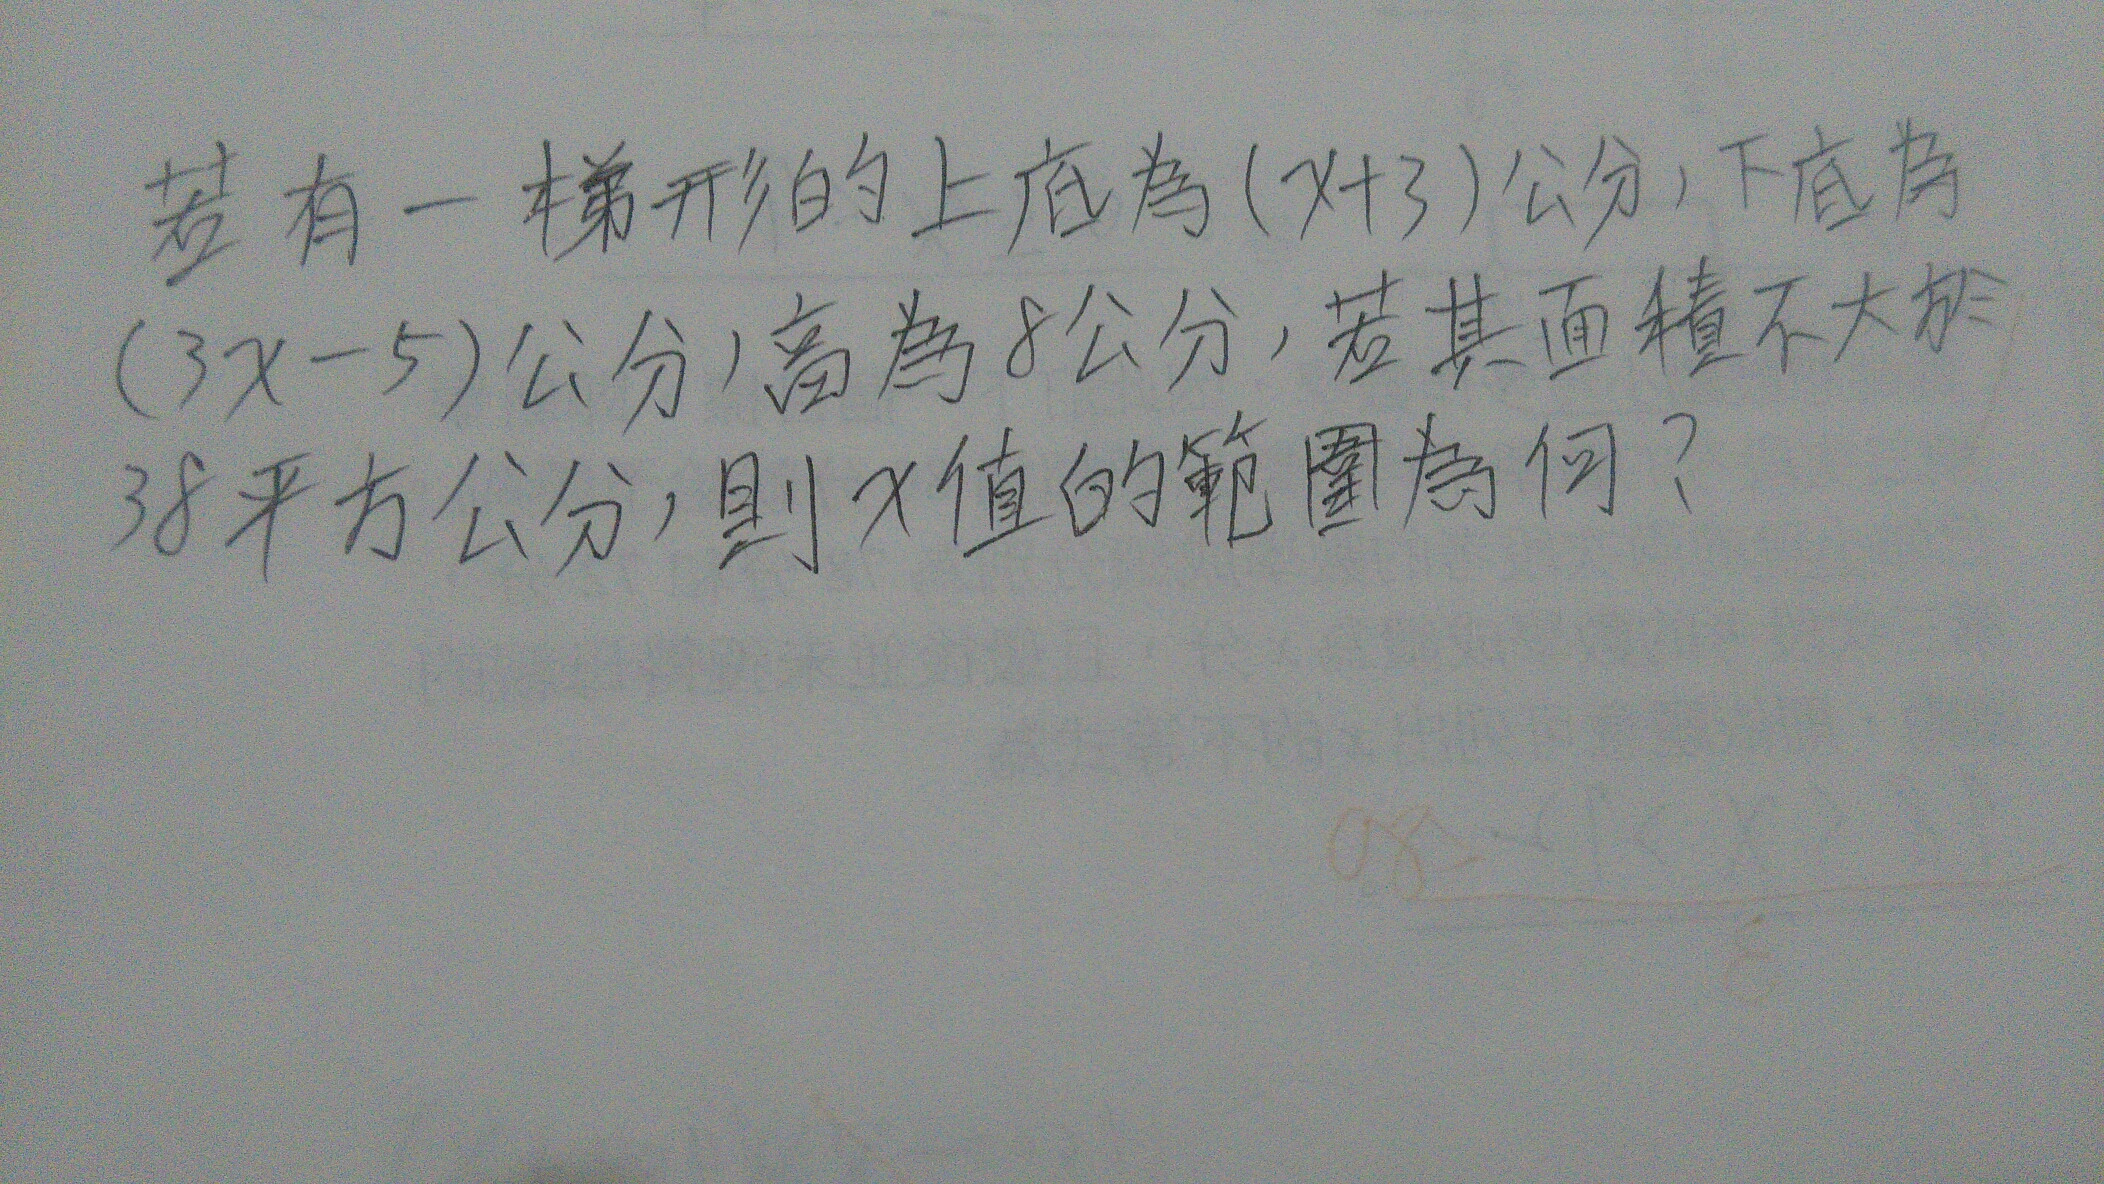 若有一梯形的上底為(x+3)公分,下底為
(3x-5)公分,高為8公分,若其面積不大於
38平方公分,則x值的範圍為何?